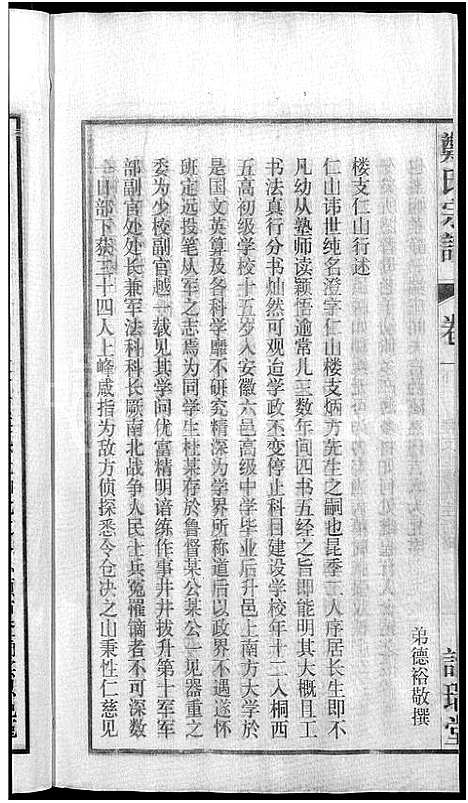 鄭氏宗譜
卷一
詩瑞堂
弟德裕敬撰
楼支仁山行述
仁山讳世纯名澄字仁山楼支炳方先生之嗣也昆季二人序居长生即不
凡幼从塾师读颖悟逾常儿三数年间四书五经之旨即能明其大概且工
书法真行分书灿然可观迨学政不变停止科目建设学校年十二入桐西
五高初级学校十五岁入安徽六邑高级中学毕业后升邑上南方大学於
是国文英算及各科学靡不研究精深为学界所称道后以政界不遇遂怀
班定远投笔从军之志焉为同学生杜某存於鲁督某公某公一见器重之
委为少校副官越一载见其学问优富精明谙练作事井井拔升第十军军
部副官处处长兼军法科科长厥南北战争人民士兵冤罹镝者不可深数
冬山部下獒三十四人上峰咸指为敌方侦探悉令仓决之山秉性仁慈见